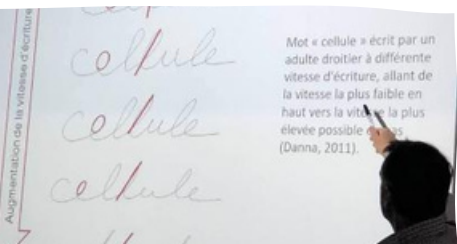 Augmentation de la vitesse d'écriture
cellule
cellule
cellule
Mot « cellule » écrit par un
adulte droitier à différente
vitesse d'écriture, allant de
la vitesse la plus faible en
haut vers la la plus
élevée possible
(Danna, 2011).